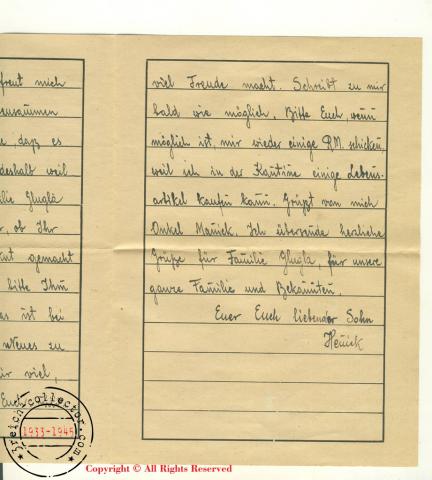 freut mich
daß es
deshalb weil
ob Ihr
gemacht
bitte Ihm
ist bei
Neues zu
viel,
Euch
viel Freude macht. Schreibt zu mir
bald wie möglich. Bitte Euch, wenn
möglich ist, mir wieder einige RM. schicken,
weil ich in der Kantine einige Lebens-
artikel kaufen kann. Grüßt von mich
Onkel
Ich übersende herzliche
Grüße für Familie Glugla, für unsere
ganze Familie und Bekannten.
Euer Euch liebender Sohn
3reich-collector.com
1933-1945
Copyright © All Rights Reserved